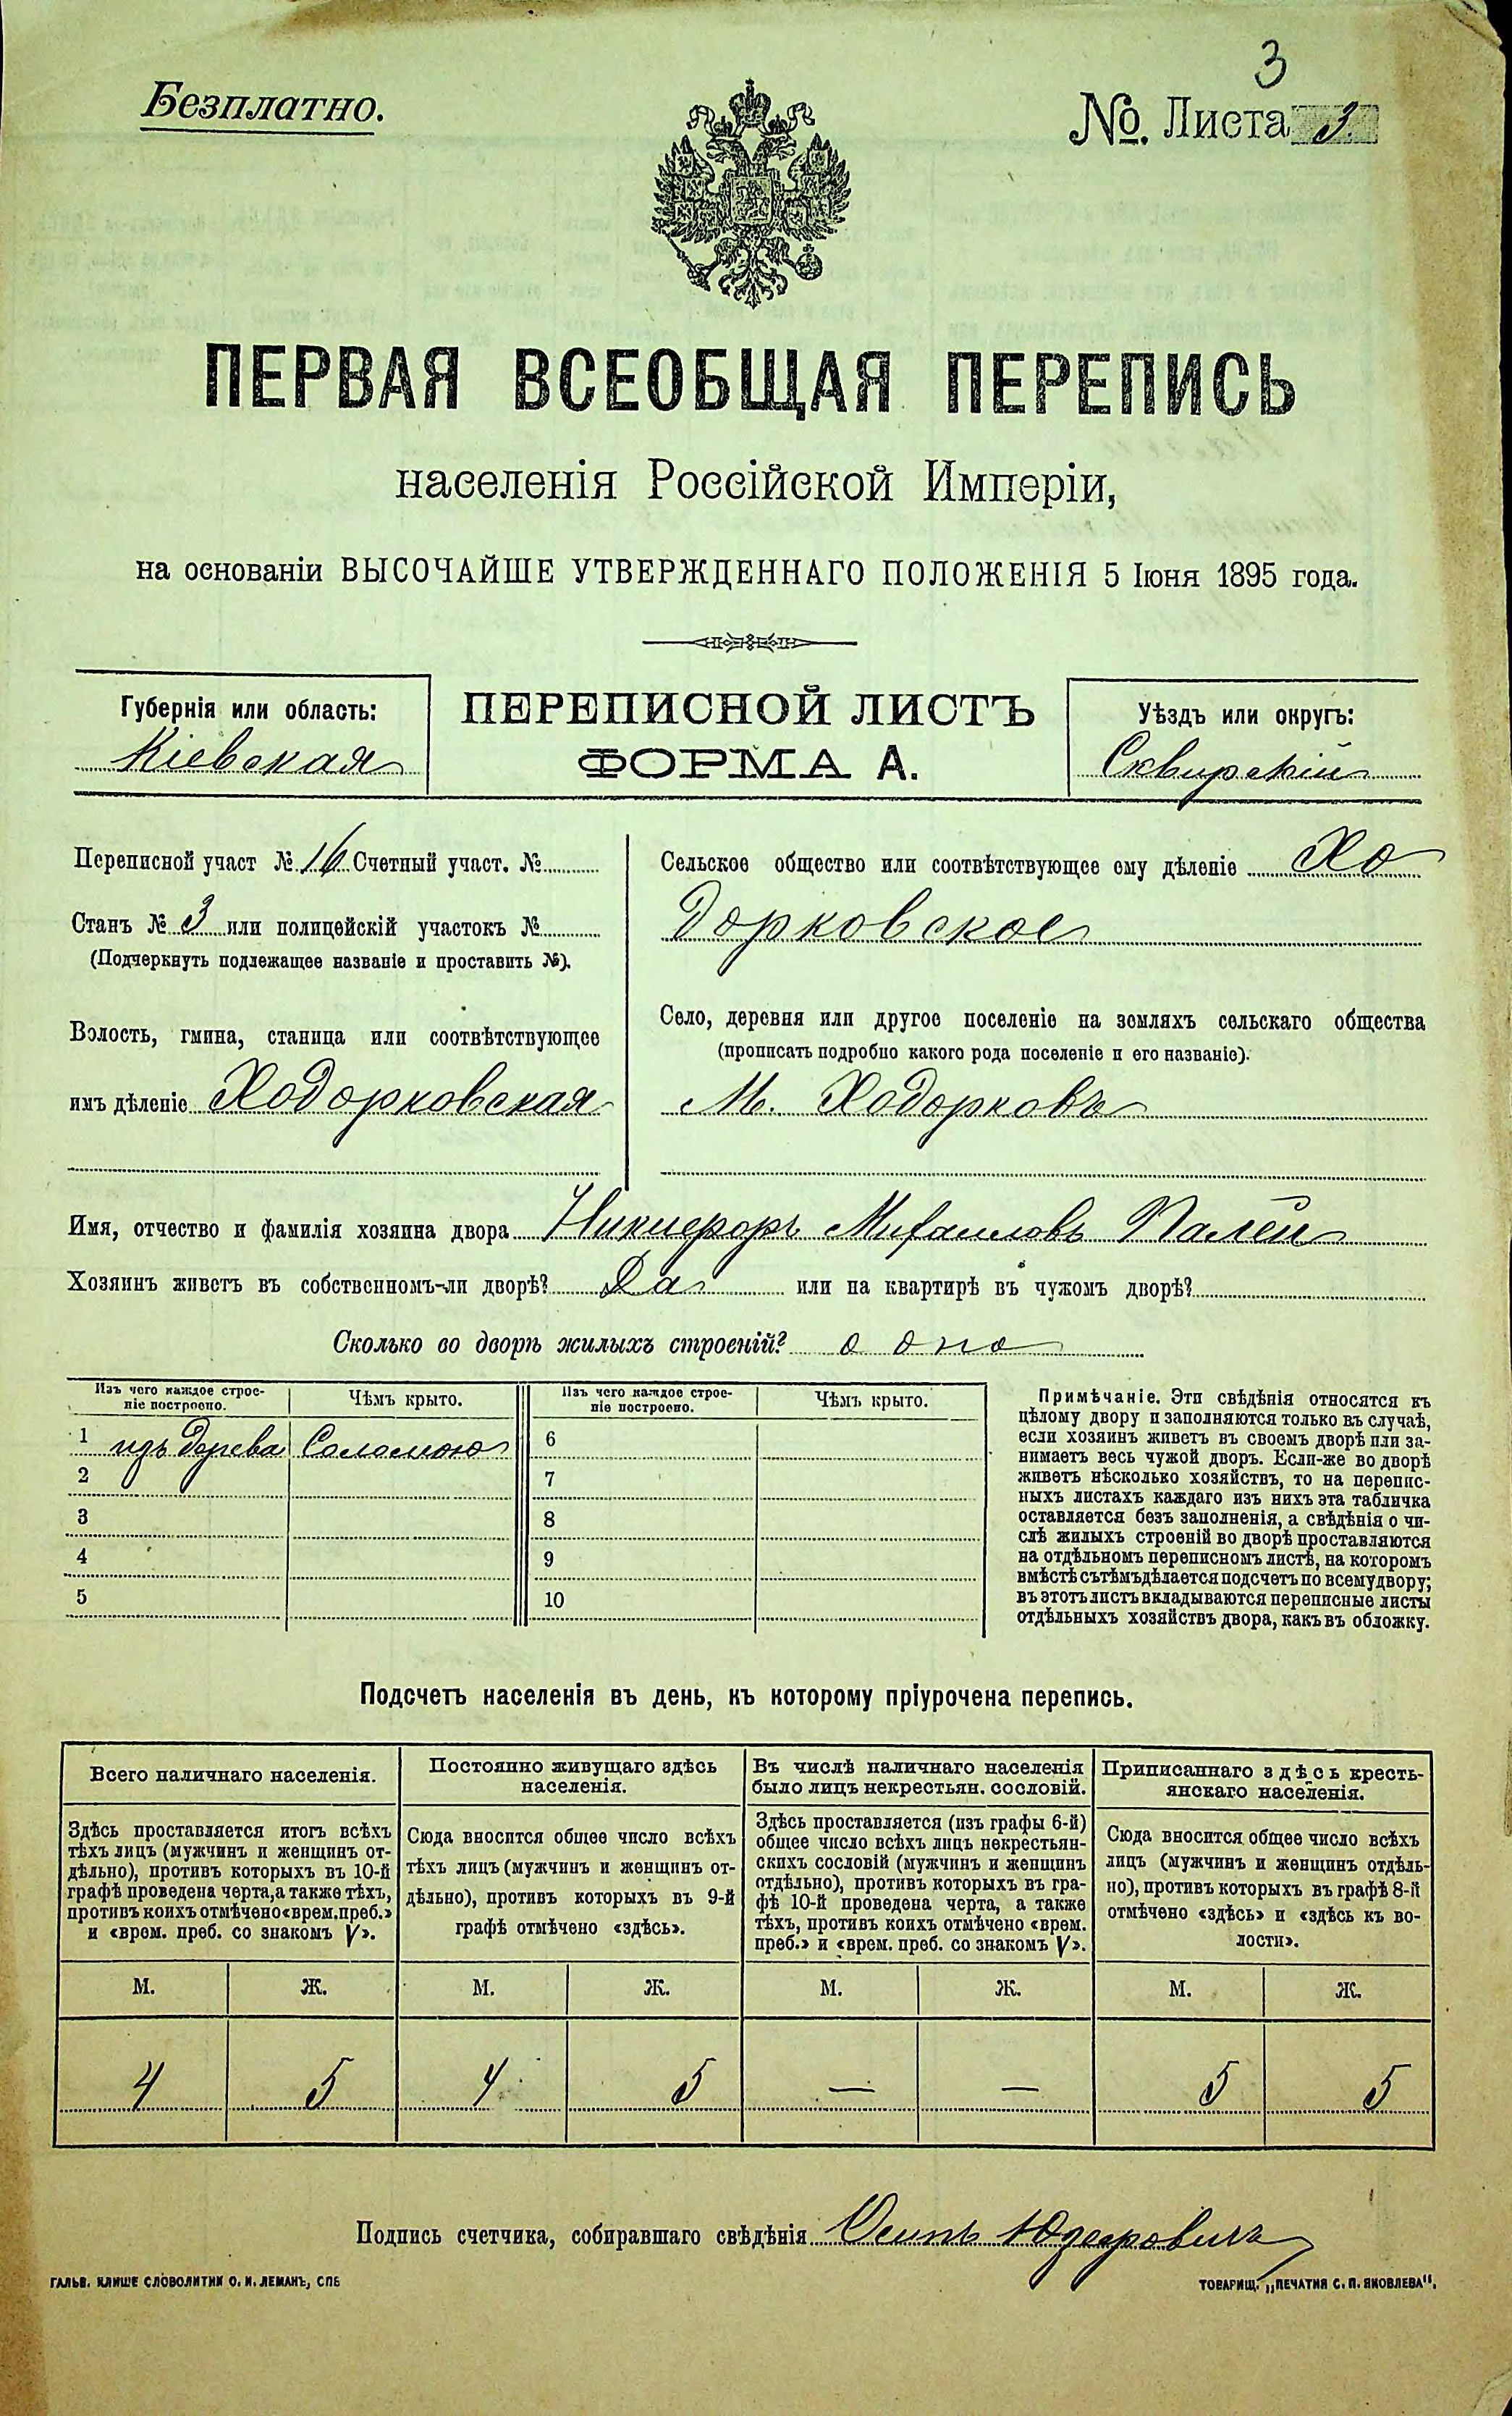 3
Безплатно.
№. Листа 3
ПЕРВАЯ ВСЕОБЩАЯ ПЕРЕПИСЬ
населенія Россійской Имперіи,
на основаніи ВЫСОЧАЙШЕ УТВЕРЖДЕННАГО ПОЛОЖЕНІЯ 5 Іюня 1895 года.
Губернія или область:
Кіевская
ПЕРЕПИСНОЙ ЛИСТЪ
ФОРМА А.
Уѣздъ или округъ:
Сквирскій
Переписной участ № 16 Счетный участ. №
Станъ № 3 или полицейскій участокъ №
(Подчеркнуть подлежащее названіе и проставить №).
Волость, гмина, станица или соотвѣтствующее
имъ дѣленіе Ходорковская
Сельское общество или соотвѣтствующее ему дѣленіе Хо
дорковское
Село, деревня или другое поселеніе на земляхъ сельскаго общества
(прописать подробно какого рода поселеніе и его названіе).
М. Ходорковъ
Имя, отчество и фамилія хозяина двора Никифоръ Михаиловъ Палѣй
Хозяинъ живетъ въ собственномъ-ли дворѣ? Да или на квартирѣ въ чужомъ дворѣ?
Сколько во дворѣ жилыхъ строеній? одно
Изъ чего каждое строе-
ніе построено.
Чѣмъ крыто.
Изъ чего каждое строе-
ніе построено.
Чѣмъ крыто.
1 изъ дерева Соломою 6
2 7
3 8
4 9
5 10
Примѣчаніе. Эти свѣдѣнія относятся къ
цѣлому двору и заполняются только въ случаѣ,
если хозяинъ живетъ въ своемъ дворѣ или за-
нимаетъ весь чужой дворъ. Если-же во дворѣ
живетъ нѣсколько хозяйствъ, то на перепис-
ныхъ листахъ каждаго изъ нихъ эта табличка
оставляется безъ заполненія, а свѣдѣнія о чи-
слѣ жилыхъ строеній во дворѣ проставляются
на отдѣльномъ переписномъ листѣ, на которомъ
вмѣстѣ съ тѣмъ дѣлается подсчетъ по всему двору;
въ этотъ листъ вкладываются переписные листы
отдѣльныхъ хозяйствъ двора, какъ въ обложку.
Подсчетъ населенія въ день, къ которому пріурочена перепись.
Всего наличнаго населенія.
Здѣсь проставляется итогъ всѣхъ
тѣхъ лицъ (мужчинъ и женщинъ от-
дѣльно), противъ которыхъ въ 10-й
графѣ проведена черта, а также тѣхъ,
противъ коихъ отмѣчено «врем. преб.»
и «врем. преб. со знакомъ V».
Постоянно живущаго здѣсь
населенія.
Сюда вносится общее число всѣхъ
тѣхъ лицъ (мужчинъ и женщинъ от-
дѣльно), противъ которыхъ въ 9-й
графѣ отмѣчено «здѣсь».
Въ числѣ наличнаго населенія
было лицъ некрестьян. сословій.
Здѣсь проставляется (изъ графы 6-й)
общее число всѣхъ лицъ некрестьян-
скихъ сословій (мужчинъ и женщинъ
отдѣльно), противъ которыхъ въ гра-
фѣ 10-й проведена черта, а также
тѣхъ, противъ коихъ отмѣчено «врем.
преб.» и «врем. преб. со знакомъ V».
Приписаннаго здѣсь кресть-
янскаго населенія.
Сюда вносится общее число всѣхъ
лицъ (мужчинъ и женщинъ отдѣль-
но), противъ которыхъ въ графѣ 8-й
отмѣчено «здѣсь» и «здѣсь къ во-
лости».
М. Ж. М. Ж. М. Ж. М. Ж.
4 5 4 5 — — 5 5
Подпись счетчика, собиравшаго свѣдѣнія Осипъ
ГАЛЬВ. КЛИШЕ СЛОВОЛИТНИ О. И. ЛЕМАНЪ, СПБ
ТОВАРИЩ. „ПЕЧАТНЯ С. П. ЯКОВЛЕВА".